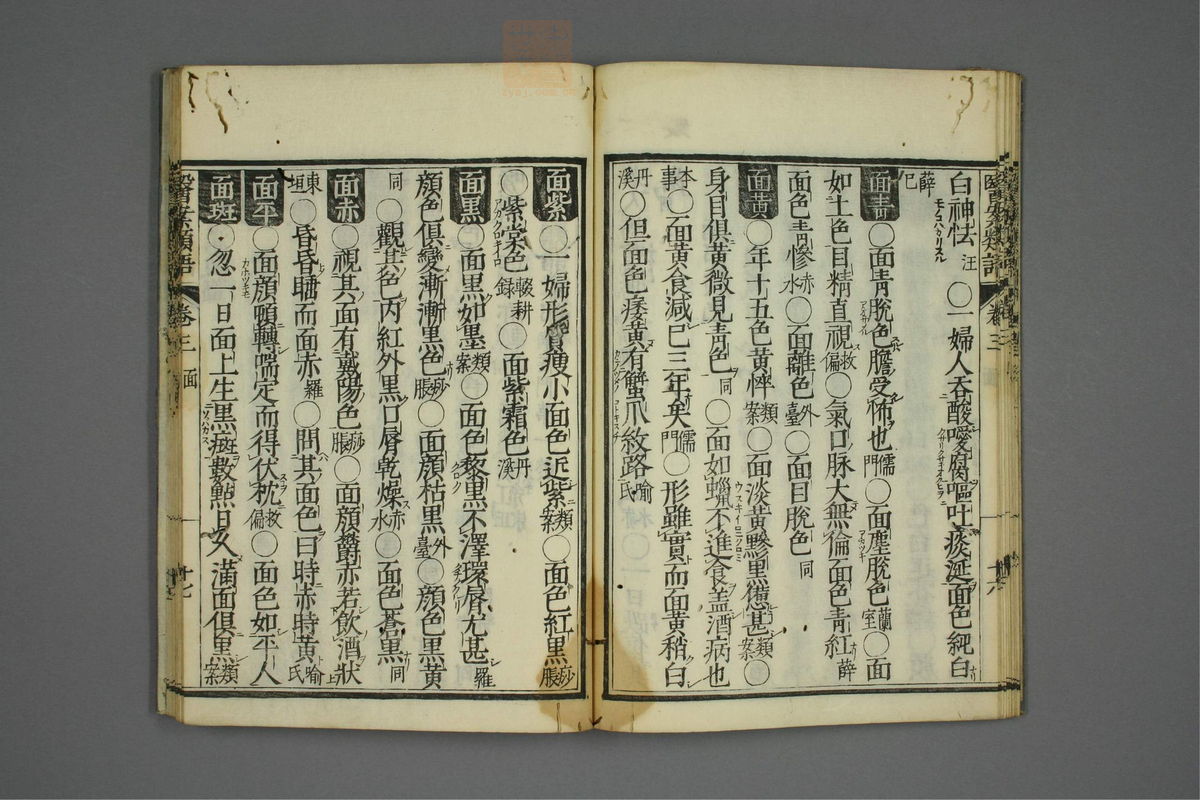 白神怯汪〇一婦人吞酸噯腐嘔吐痰涎面色純白
薛己
面青〇面青脫色膽受怖也儒門〇面塵脫色蘭室〇面
如土色目精直視救偏〇氣口脉大無倫面色青紅薛
面色青慘赤水〇面離色外臺〇面目脫色同
面黃〇年十五色黃悴類案〇面淡黃黲黑憊甚類案〇
身目俱黃微見青色同〇面如蠟不進食盖酒病也
本事〇面黃食減已三年矣儒門〇形雖實而面黃稍白
丹溪〇但面色痿黃有蟹爪紋路喻氏
醫業類語 卷三 面 十六
面紫〇一婦形質瘦小面色近紫類案〇面色紅黑痧脹
〇紫棠色輟耕錄〇面紫霜色丹溪
面黑〇面黑如墨類案〇面色黎黑不澤環唇尤甚羅
顏色俱變漸漸黑色痧脹〇面顏枯黑外臺〇顏色黑黃
同〇觀其色內紅外黑口唇乾燥赤水〇面色蒼黑同
面赤〇視其面有戴陽色痧脹〇面顏欝赤若飲酒狀上
東垣〇昏昏瞆而面赤羅〇問其面色曰時赤時黃喻氏
面平〇面顏頓轉喘定而得伏枕救偏〇面色如平人
面斑〇忽一日面上生黑斑數點日久滿面俱黑類案
醫業類語 卷三 面 十七